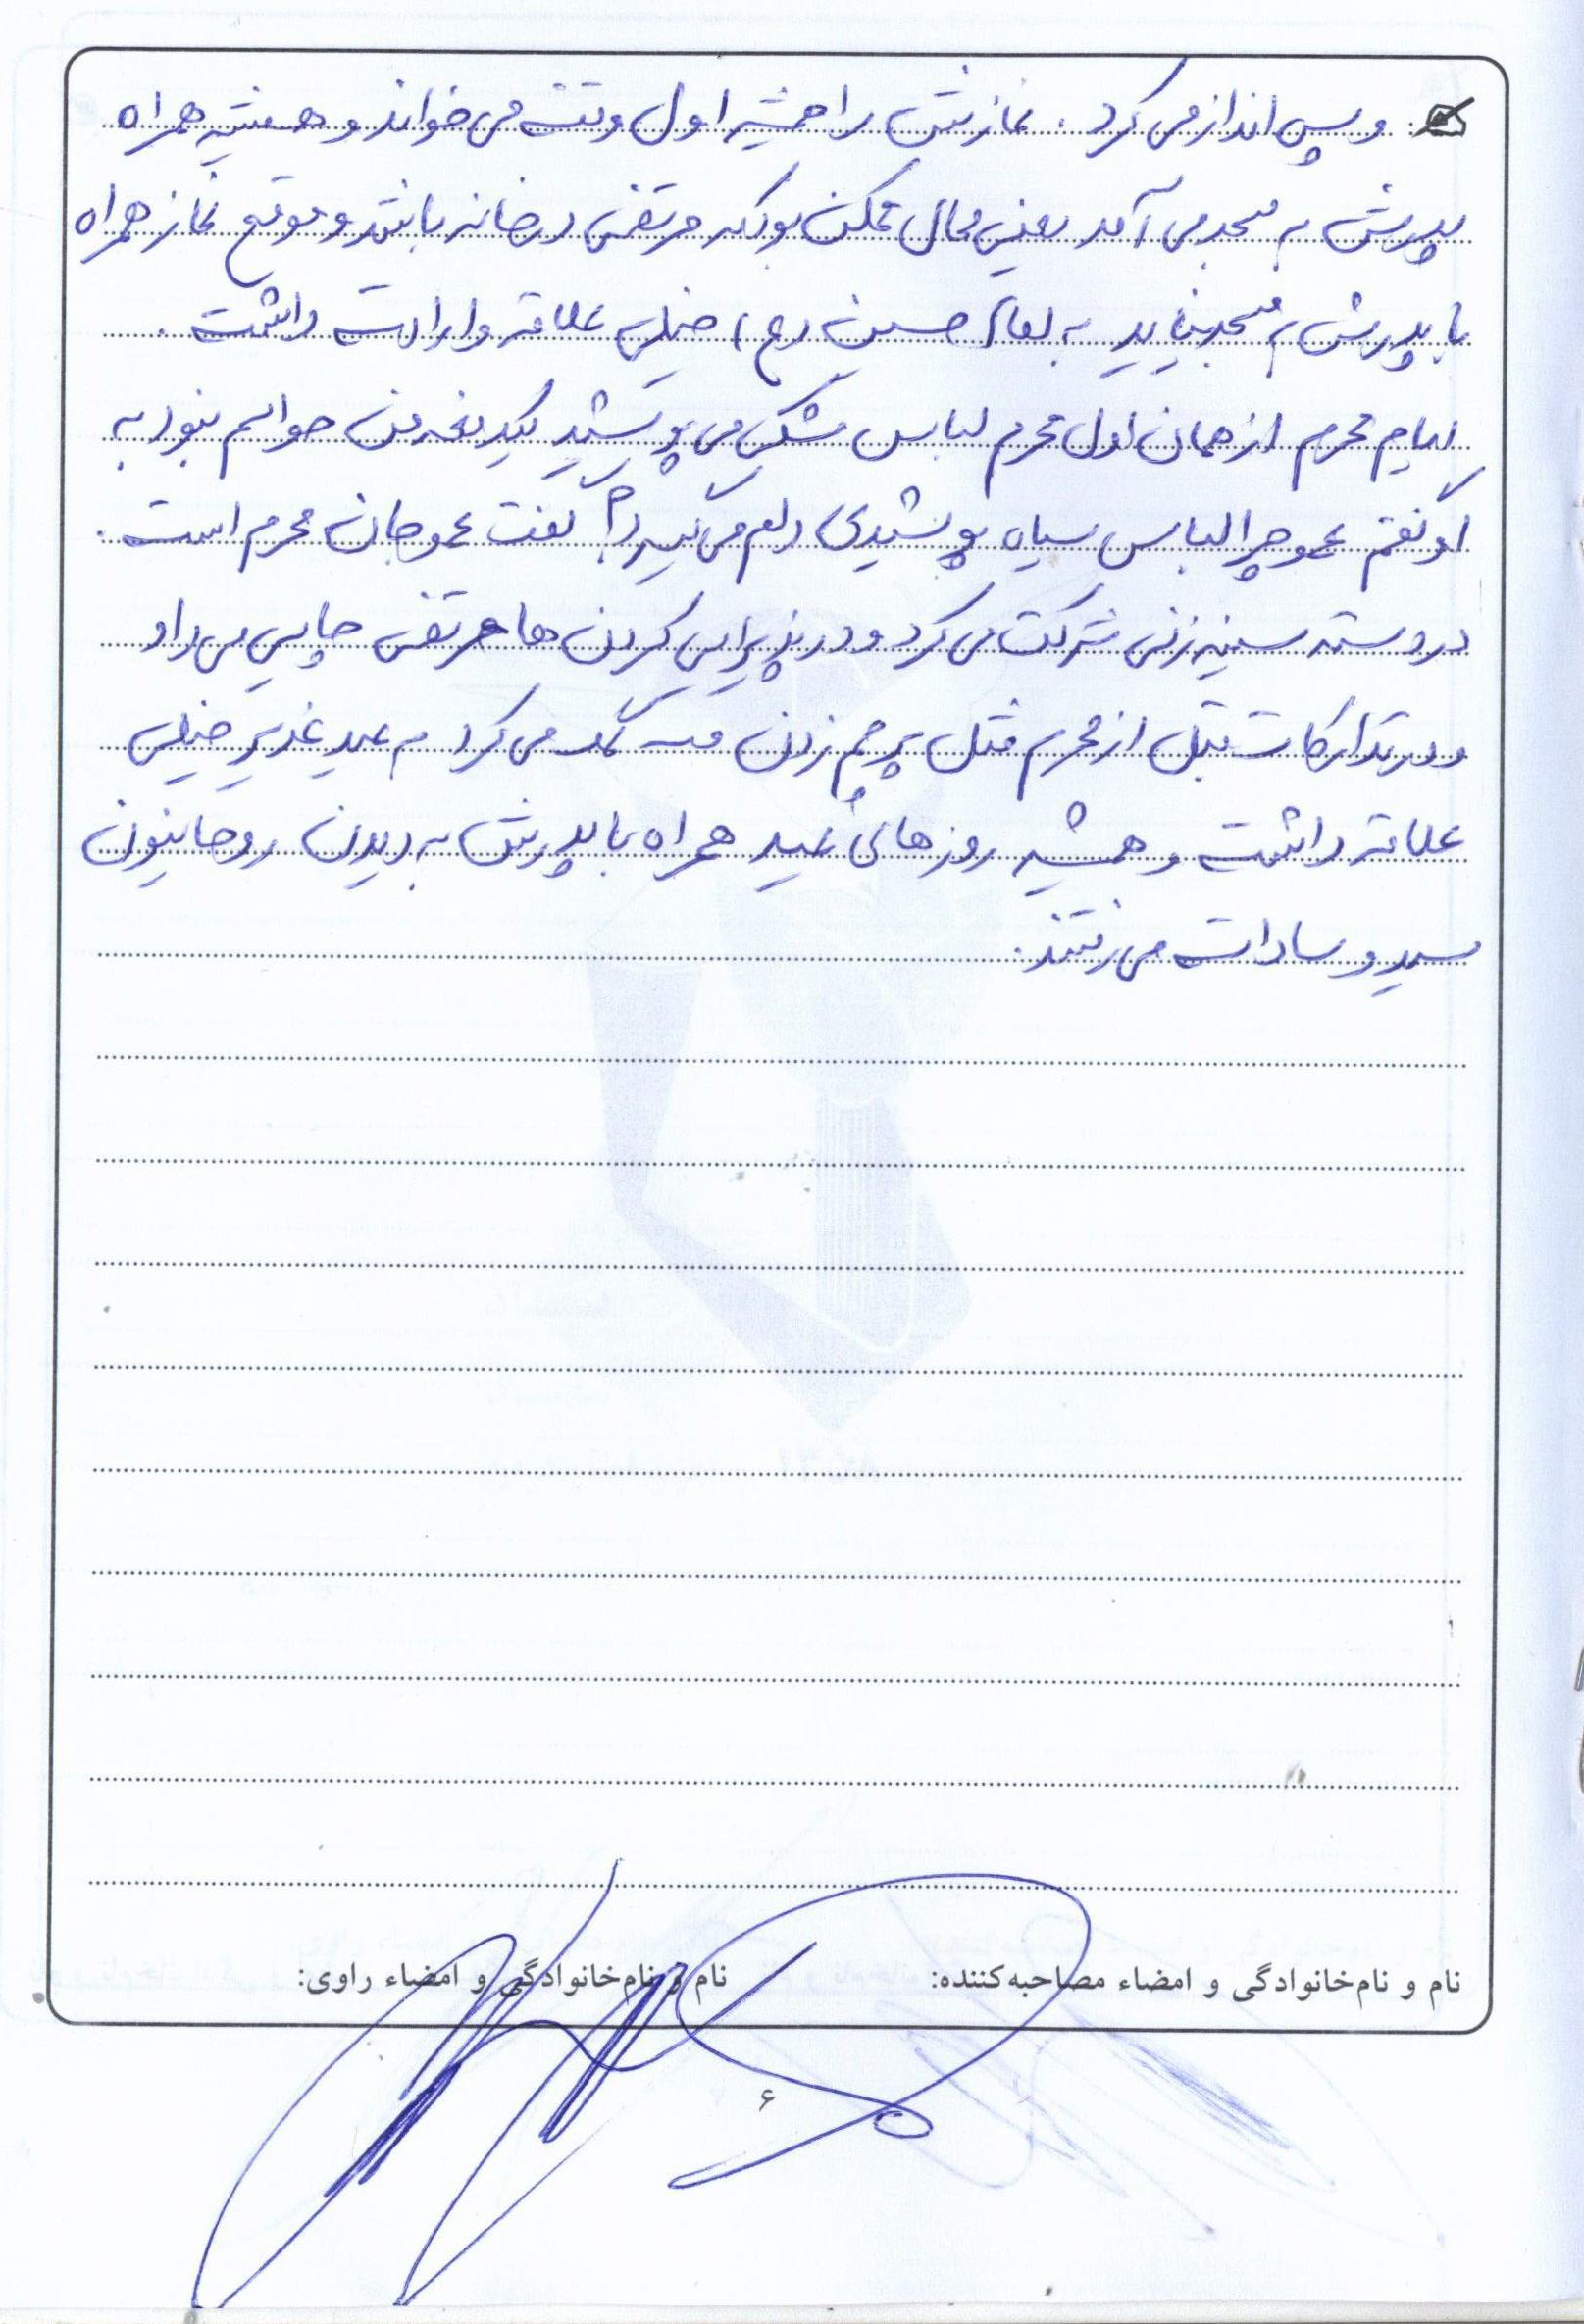 و پس انداز می کرد. نمازش را همیشه اول وقت می خواند و همیشه همراه
پدرش به مسجد می آمد یعنی محال ممکن بود که مرتضی در خانه باشد و موقع نماز همراه
با پدرش به مسجد نیاید به امام حسین (ع) خیلی علاقه و ارادت داشت.
ایام محرم از همان اول محرم لباس مشکی می پوشید یکدفعه من حواسم نبود به
او گفتم عمو چرا لباس سیاه پوشیدی دلم می گیرد؟ گفت عمو جان محرم است.
در دسته سینه زنی شرکت می کرد و در پذیرایی کردن ها مرتضی چایی می داد
و در تدارکات قبل از محرم مثل پرچم زدن کمک می کرد به عید غدیر خیلی
علاقه داشت و همیشه روزهای عید همراه با پدرش به دیدن روحانیون
سید و سادات می رفتند.
نام و نام‌خانوادگی و امضاء مصاحبه‌کننده: نام و نام‌خانوادگی و امضاء راوی:
۶